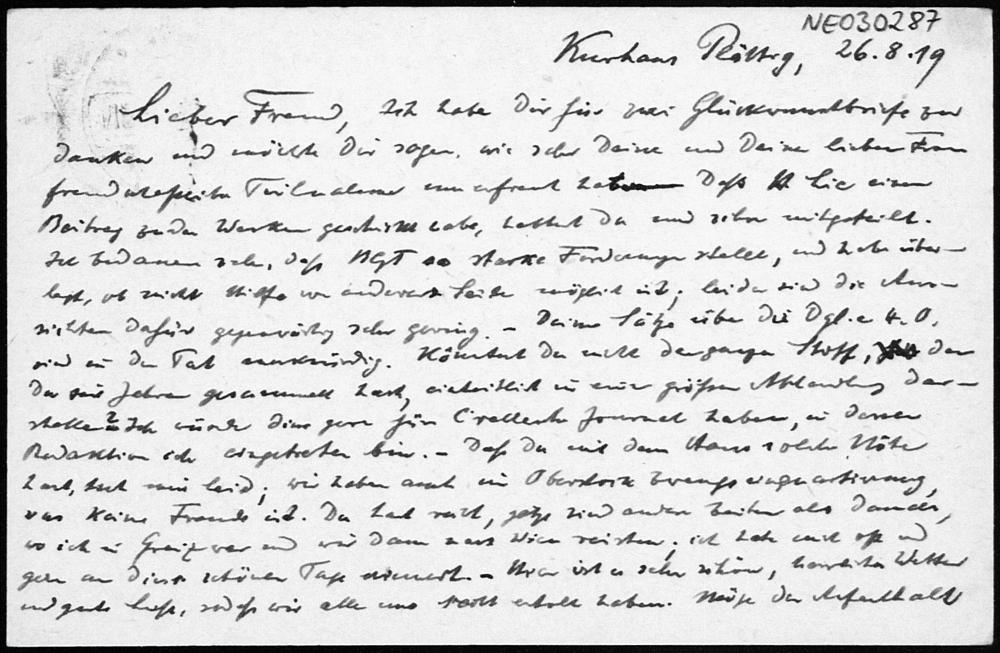 NE030287
Kurhaus 26.8.19
Lieber Freund, Ich habe Dir für zwei Glückwunschbriefe zu
danken und möchte Dir sagen, wie sehr Deine und Deiner lieben Frau
Teilnahme erfreut Daß Lie einen
Beitrag zu den Werken geschickt habe, hattest Du uns schon mitgeteilt.
Ich bedaure sehr, daß BGT so starke Forderungen stellt, und habe über-
legt, ob nicht Hilfe von anderer Seite möglich ist; leider sind die Aus-
sichten dafür gegenwärtig sehr gering. – Deine Sätze über die Dgl. 4. O.
sind in der Tat merkwürdig. Könntest Du nicht den ganzen Stoff, den
Du seit Jahren gesammelt hast, einheitlich in einer größeren Abhandlung dar-
stellen? Ich würde diese gern für Crelles Journal haben, in dessen
Redaktion ich eingetreten bin. – Daß Du mit dem Haus solche Nöte
hast, tut mir leid; wir haben auch im Oberstock Zwangseinquartierung,
was keine Freude ist. Du hast recht, jetzt sind andere Zeiten als damals,
wo ich in Greiz war und wir dann nach Wien reisten; ich habe mich oft und
gern an diese schönen Tage erinnert. – Hier ist es sehr schön, herrliches Wetter
und gute Luft, sodaß wir alle uns recht erholt haben. Möge der Aufenthalt